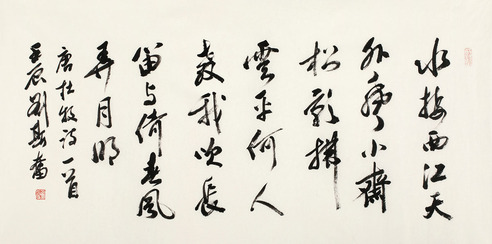 水接西江天
外声小齋
松影撲
雲平何人
教我吹長
笛与倚春風
弄月明
唐杜牧詩一首
壬辰劉斯奮